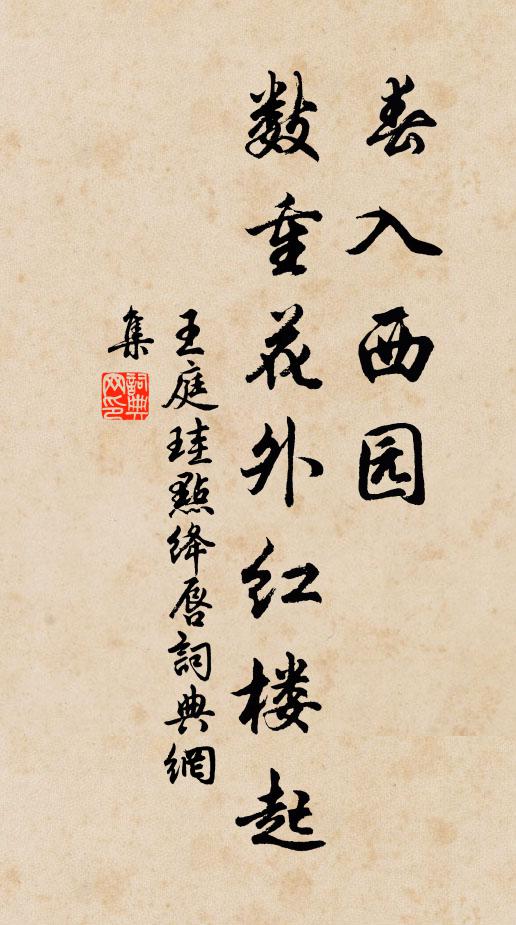 春入西园
数重花外红楼起
王庭珪點绛唇詞典網
集
詞典
网印